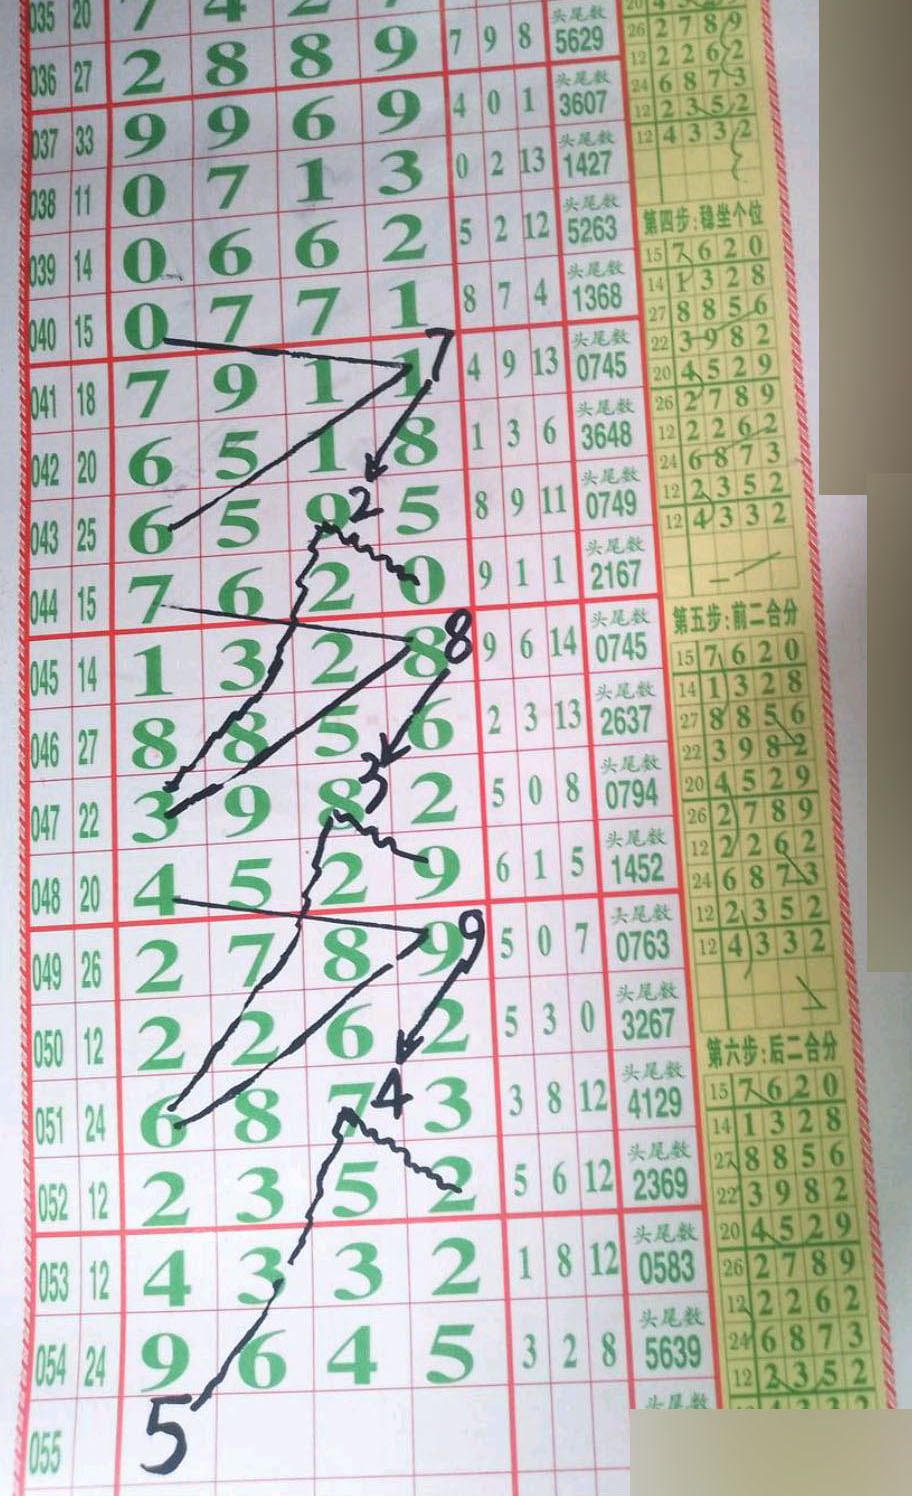 035 20 7 4 2
036 27 2 8 8 9 7 9 8 头尾数 5629
037 33 9 9 6 9 4 0 1 头尾数 3607
038 11 0 7 1 3 0 2 13 头尾数 1427
039 14 0 6 6 2 5 2 12 头尾数 5263
040 15 0 7 7 1 8 7 4 头尾数 1368
7
041 18 7 9 1 1 4 9 13 头尾数 0745
042 20 6 5 1 8 1 3 6 头尾数 3648
2
043 25 6 5 9 5 8 9 11 头尾数 0749
044 15 7 6 2 0 9 1 1 头尾数 2167
8
045 14 1 3 2 8 9 6 14 头尾数 0745
046 27 8 8 5 6 2 3 13 头尾数 2637
3
047 22 3 9 8 2 5 0 8 头尾数 0794
048 20 4 5 2 9 6 1 5 头尾数 1452
9
049 26 2 7 8 9 5 0 7 头尾数 0763
050 12 2 2 6 2 5 3 0 头尾数 3267
4
051 24 6 8 7 3 3 8 12 头尾数 4129
052 12 2 3 5 2 5 6 12 头尾数 2369
053 12 4 3 3 2 1 8 12 头尾数 0583
054 24 9 6 4 5 3 2 8 头尾数 5639
055 5 头尾数
26 2 7 8 9
12 2 2 6 2
24 6 8 7 3
12 2 3 5 2
12 4 3 3 2
第四步:稳坐个位
15 7 6 2 0
14 1 3 2 8
27 8 8 5 6
22 3 9 8 2
20 4 5 2 9
26 2 7 8 9
12 2 2 6 2
24 6 8 7 3
12 2 3 5 2
12 4 3 3 2
第五步:前二合分
15 7 6 2 0
14 1 3 2 8
27 8 8 5 6
22 3 9 8 2
20 4 5 2 9
26 2 7 8 9
12 2 2 6 2
24 6 8 7 3
12 2 3 5 2
12 4 3 3 2
第六步:后二合分
15 7 6 2 0
14 1 3 2 8
27 8 8 5 6
22 3 9 8 2
20 4 5 2 9
26 2 7 8 9
12 2 2 6 2
24 6 8 7 3
12 2 3 5 2